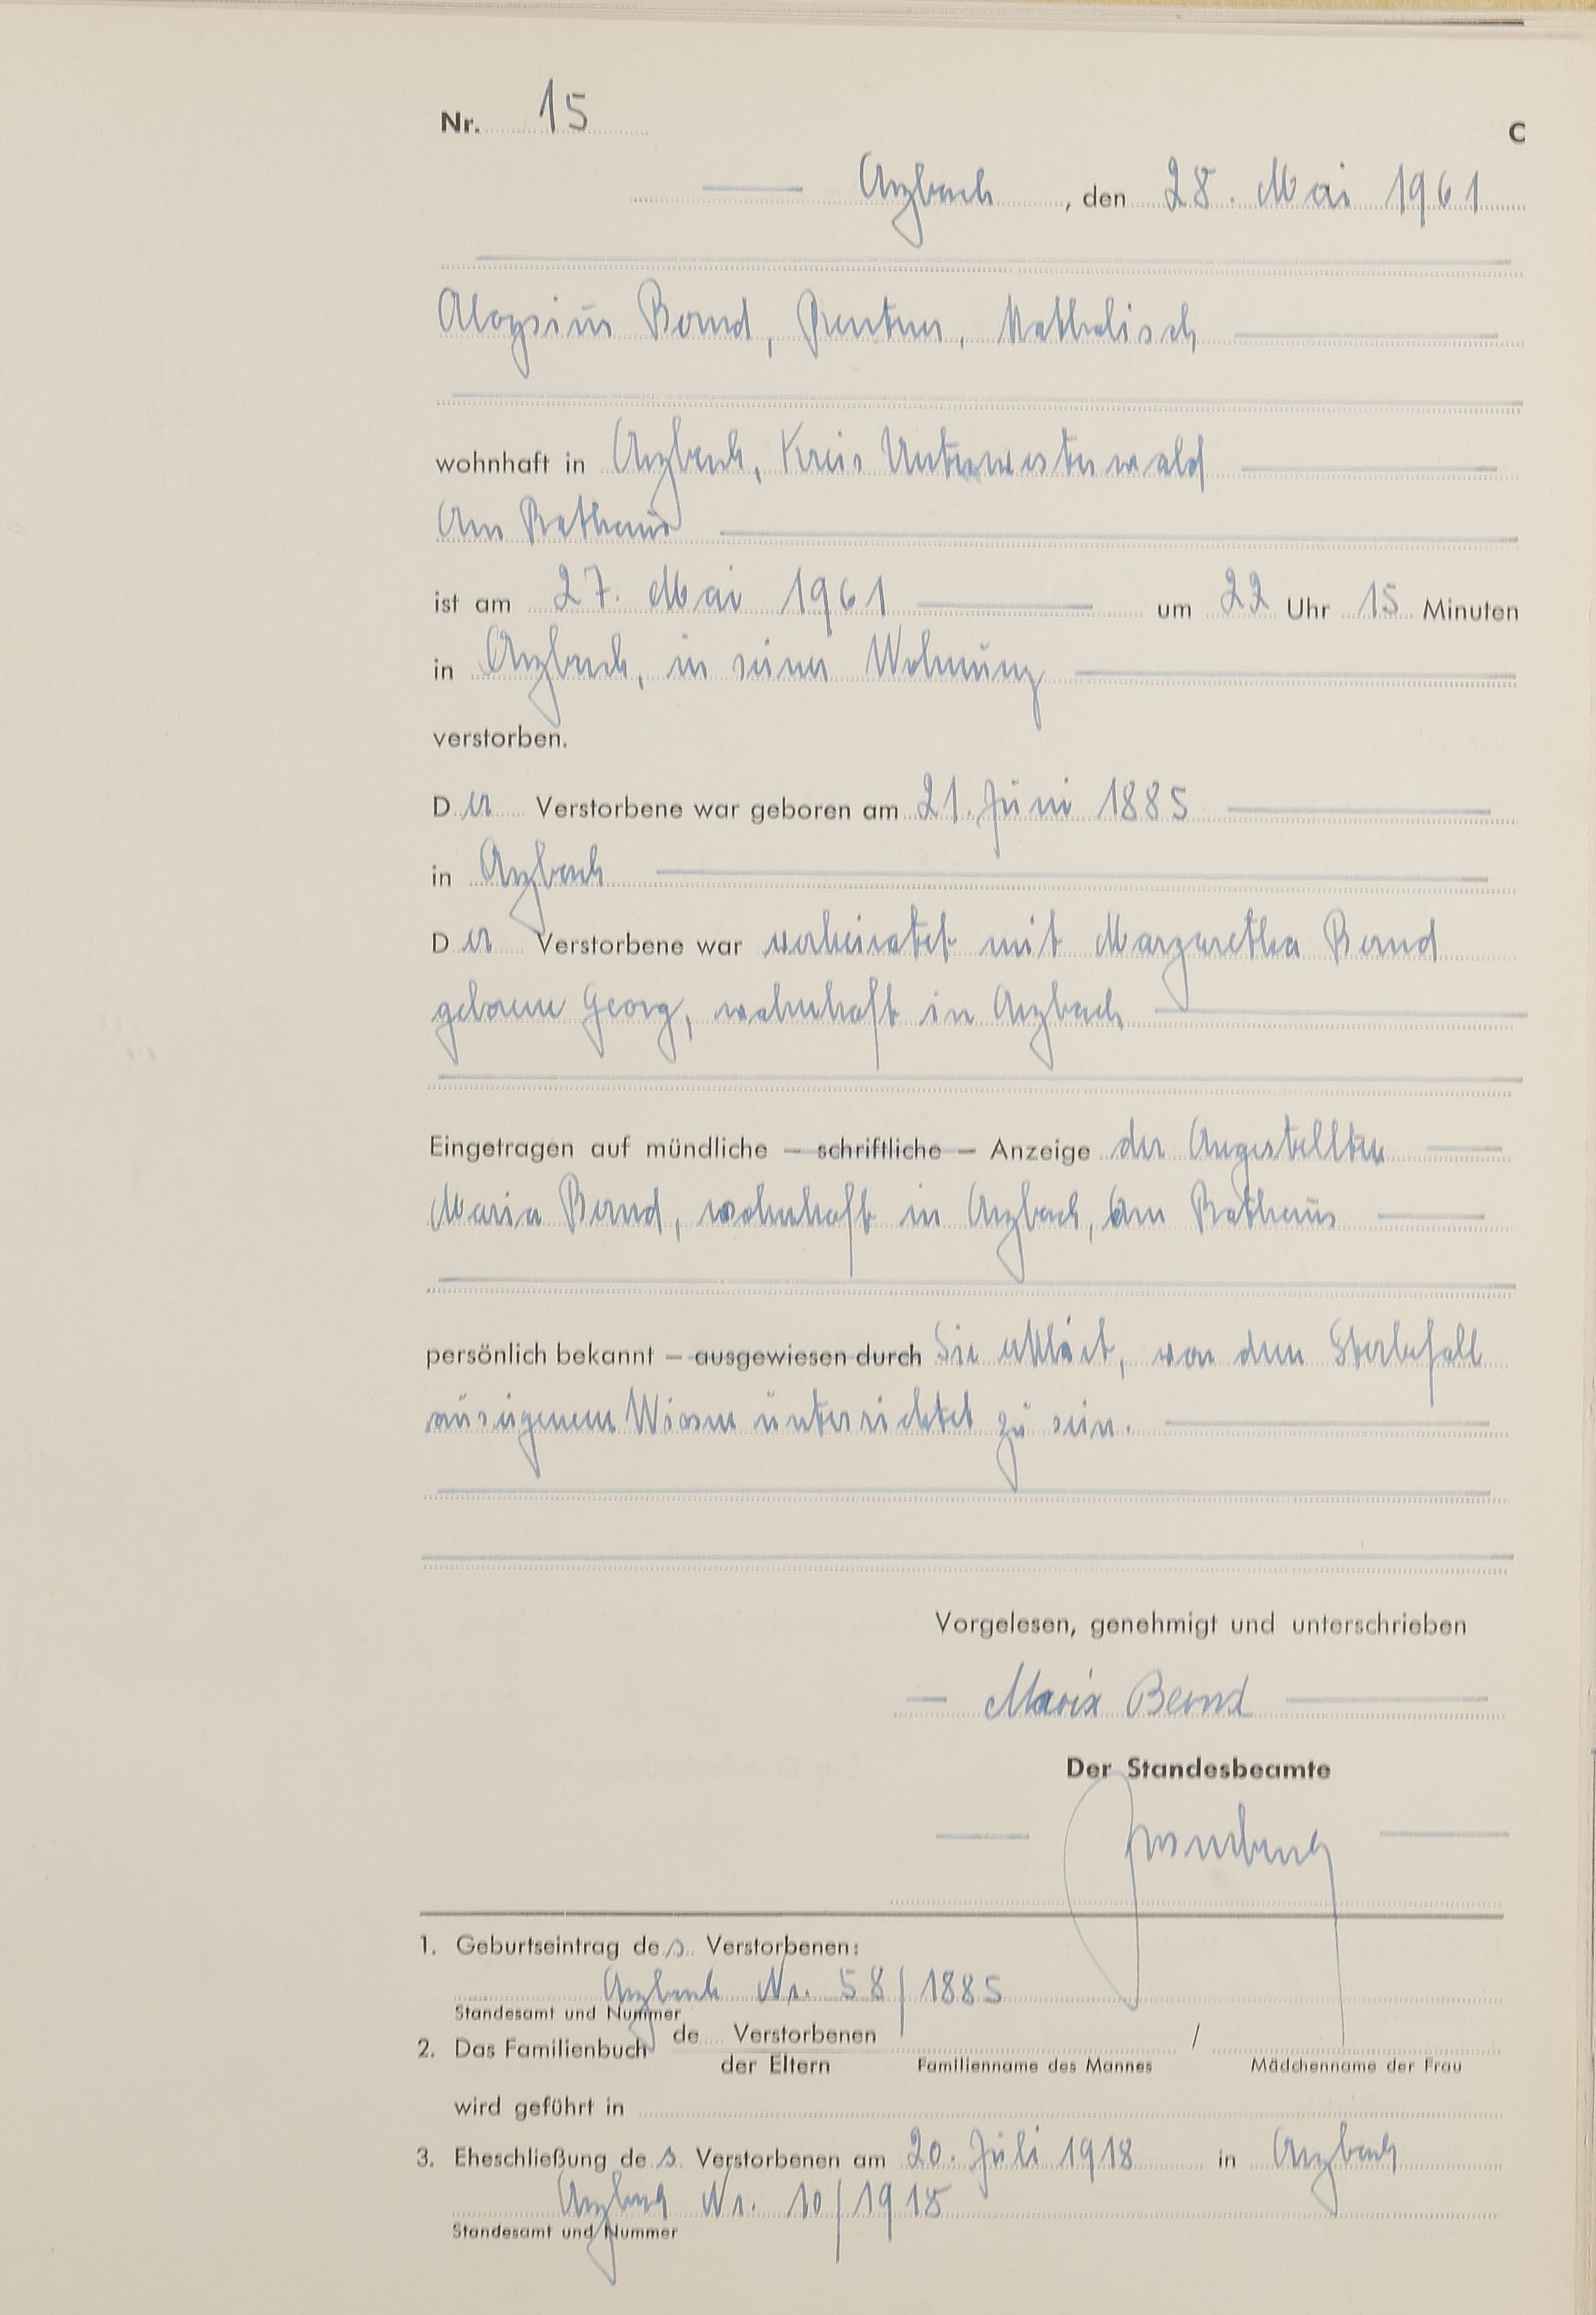 Nr. 15
C
Arzbach, den 28. Mai 1961
Aloysius Bernd, Rentner, katholisch
wohnhaft in Arzbach, Kreis Unterwesterwald
Am Rathaus
ist am 27. Mai 1961 um 22 Uhr 15 Minuten
in Arzbach, in seiner Wohnung
verstorben.
Der Verstorbene war geboren am 21. Juni 1885
in Arzbach
Der Verstorbene war verheiratet mit Margaretha Bernd
geborene Georg, wohnhaft in Arzbach
Eingetragen auf mündliche – schriftliche – Anzeige der Angestellten
Maria Bernd, wohnhaft in Arzbach, Am Rathaus
persönlich bekannt – ausgewiesen durch Sie erklärt, von dem Sterbefall
aus eigenem Wissen unterrichtet zu sein.
Vorgelesen, genehmigt und unterschrieben
Maria Bernd
Der Standesbeamte
1. Geburtseintrag des Verstorbenen:
Arzbach Nr. 58/1885
Standesamt und Nummer
2. Das Familienbuch de Verstorbenen /
der Eltern Familienname des Mannes Mädchenname der Frau
wird geführt in
3. Eheschließung des Verstorbenen am 20. Juli 1918 in Arzbach
Arzbach Nr. 10/1918
Standesamt und Nummer